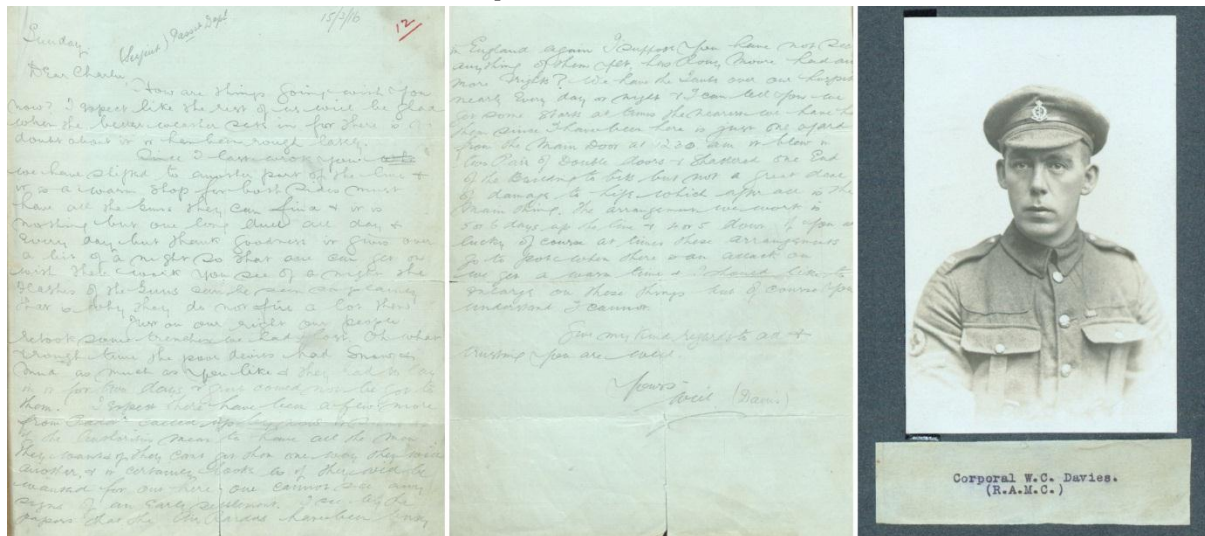 15/2/16
12
Sunday
(Urgent) Passed Dept
Dear Charlie
How are things going with you
now? I expect like the rest of us will be glad
when the better weather sets in for there is no
doubt about it it has been rough lately.
Since I last wrote you
we have shifted to another part of the line &
it is a warm shop for both sides must
have all the guns they can find & it is
nothing but one long duel all day &
every day but thank goodness it gives over
a bit of a night so that one can get on
with their work you see of a night the
flashes of the guns can be seen so plainly
that is why they do not fire a lot then
Just on our right our people
retook some trenches we had lost. Oh what
a rough time the poor devils had snow &
mud as much as you like & they had to lay
in it for two days & guns could not be got to
them. I expect there have been a few more
from called up by
the mean to have all the men
they want if they cant get them one way they will
another, & it certainly looks as if they will be
wanted for out here one cannot see any
signs of an early settlement. I see by the
papers that the have been
to England again I suppose you have not seen
anything of them yet, has Moore had any
more frights? We have the over our hospital
nearly every day or night & I can tell you we
get some starts at times the nearest we have had
them since I have been here is just one yard
from the Main Door at 12.30 am it blew in
two Pair of Double doors & shattered one End
of the Building to bits but not a great deal
of damage to life which after all is the
main thing. The arrangement we work is
5 or 6 days up the line & 4 or 5 down if you are
lucky of course at times these arrangements
go to when there is an attack on
we get a warm time & I should like to
enlarge on those things but of course you
understand I cannot.
Give my kind regards to all &
trusting you are well
Yours
Will (Davies)
Corporal W.C. Davies.
(R.A.M.C.)